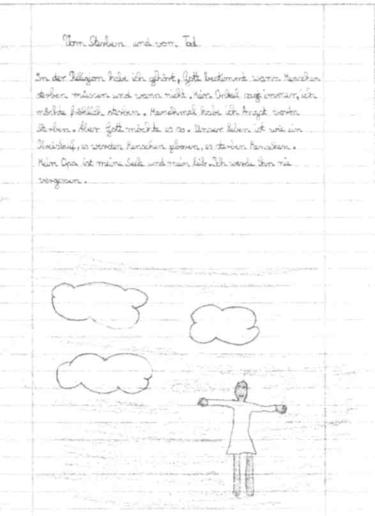 Vom Sterben und vom Tod
In der Religion habe ich gehört, Gott bestimmt wann Menschen
sterben müssen und wann nicht. Mein Onkel sagt immer, ich
möchte fröhlich sterben. Manchmal habe ich Angst vorm
Sterben. Aber Gott möchte es so. Unser Leben ist wie ein
Kreislauf, es werden Menschen geboren, es sterben Menschen.
Mein Opa ist meine Seele und mein Leib. Ich werde ihn nie
vergessen.